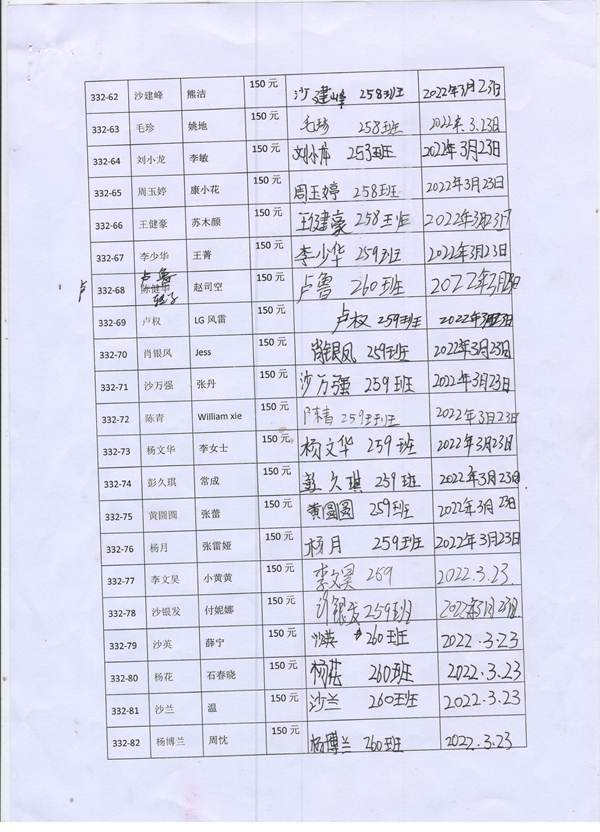 332-62 沙建峰 熊洁 150 元 沙建峰 258班 2022年3月23日
332-63 毛珍 姚地 150 元 毛珍 258班 2022年3.23日
332-64 刘小龙 李敏 150 元 刘小龙 253班 2022年3月23日
332-65 周玉婷 康小花 150 元 周玉婷 258班 2022年3月23日
332-66 王健豪 苏木颜 150 元 王健豪 258班 2022年3月23日
332-67 李少华 王菁 150 元 李少华 259班 2022年3月23日
卢 卢鲁
332-68 陈健华 赵司空 150 元 卢鲁 260班 2022年3月23日
332-69 卢权 LG 风雷 150 元 卢权 259班 2022年3月23日
332-70 肖银凤 Jess 150 元 肖银凤 259班 2022年3月23日
332-71 沙万强 张丹 150 元 沙万强 259班 2022年3月23日
332-72 陈青 William xie 150 元 陈青 259班 2022年3月23日
332-73 杨文华 李女士 150 元 杨文华 259班 2022年3月23日
332-74 彭久琪 常成 150 元 彭久琪 259班 2022年3月23日
332-75 黄圆圆 张蕾 150 元 黄圆圆 259班 2022年3月23日
332-76 杨月 张雷娅 150 元 杨月 259班 2022年3月23日
332-77 李文昊 小黄黄 150 元 李文昊 259 2022.3.23
332-78 沙银发 付妮娜 150 元 沙银发 259班 2022年3月23日
332-79 沙英 薛宁 150 元 沙英 260班 2022.3.23
332-80 杨花 石春晓 150 元 杨花 260班 2022.3.23
332-81 沙兰 温 150 元 沙兰 260班 2022.3.23
332-82 杨博兰 周忱 150 元 杨博兰 260班 2022.3.23